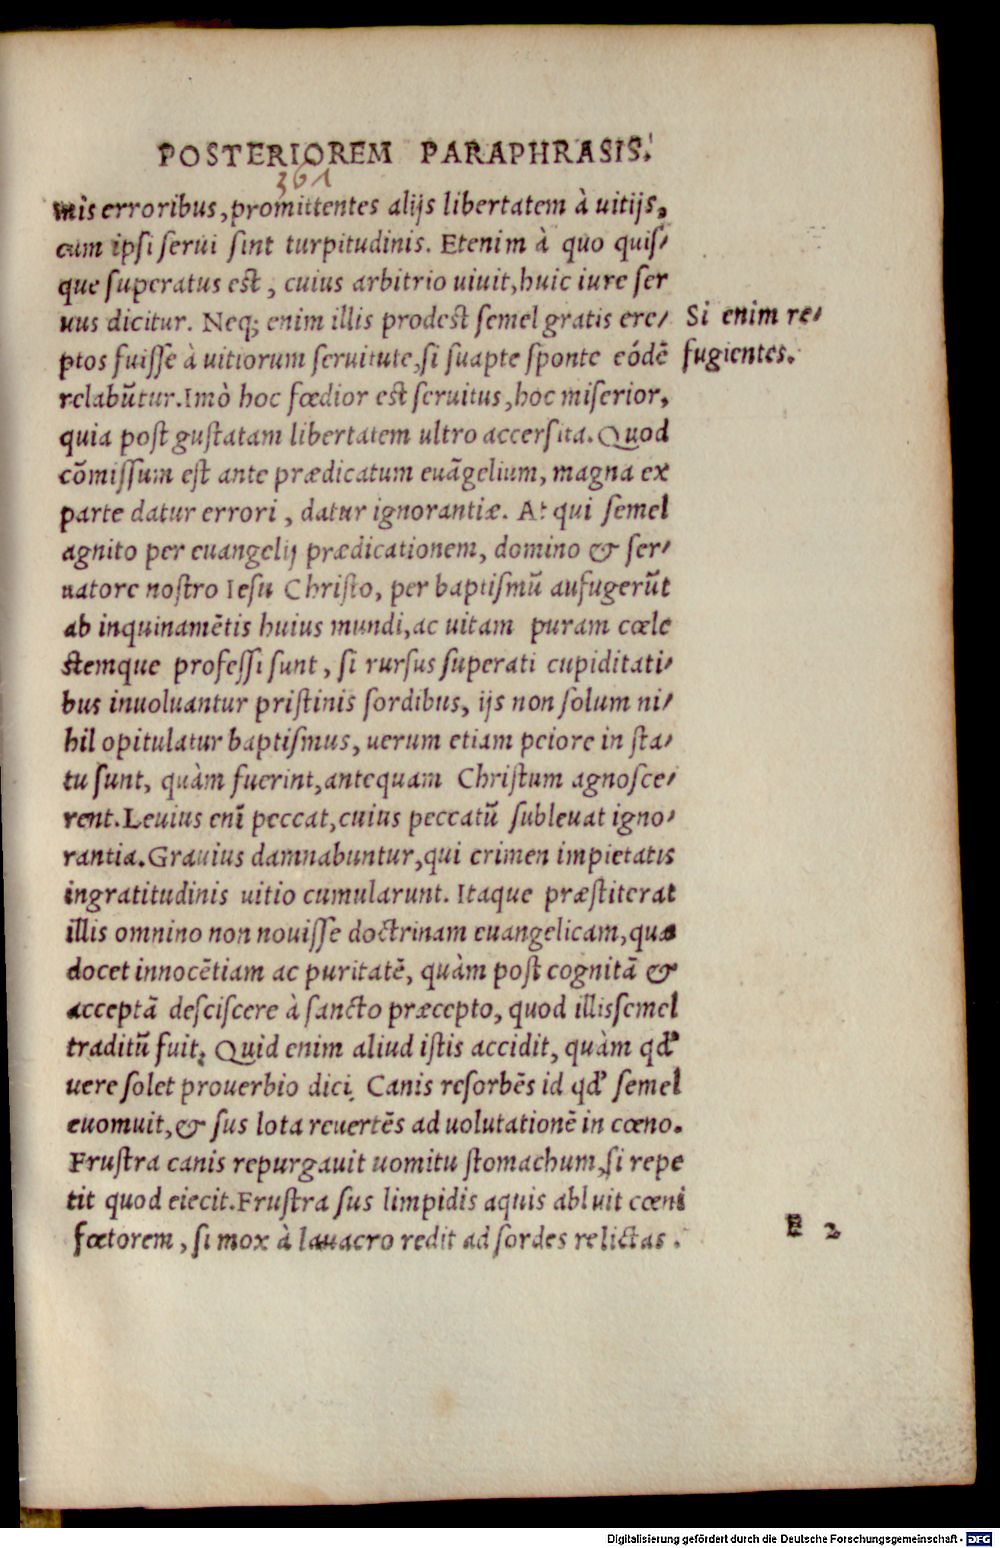 POSTERIOREM PARAPHRASIS.
361
mis erroribus, promittentes alijs libertatem à uitijs,
cum ipsi serui sint turpitudinis. Etenim à quo quis⸗
que superatus est, cuius arbitrio uiuit, huic iure ser
uus dicitur. Neq; enim illis prodest semel gratis ere⸗
ptos fuisse à uitiorum seruitute, si suapte sponte eódē
relabūtur. Imò hoc fœdior est seruitus, hoc miserior,
quia post gustatam libertatem ultro accersita. Quod
cōmissum est ante prædicatum euāgelium, magna ex
parte datur errori, datur ignorantiæ. At qui semel
agnito per euangelij prædicationem, domino & ser⸗
uatore nostro Iesu Christo, per baptismū aufugerūt
ab inquinamētis huius mundi, ac uitam puram cœle
stemque professi sunt, si rursus superati cupiditati⸗
bus inuoluantur pristinis sordibus, ijs non solum ni⸗
hil opitulatur baptismus, uerum etiam peiore in sta⸗
tu sunt, quàm fuerint, antequam Christum agnosce⸗
rent. Leuius enī peccat, cuius peccatū subleuat igno⸗
rantia. Grauius damnabuntur, qui crimen impietatis
ingratitudinis uitio cumularunt. Itaque præstiterat
illis omnino non nouisse doctrinam euangelicam, quæ
docet innocētiam ac puritatē, quàm post cognitā &
acceptā desciscere à sancto præcepto, quod illis semel
traditū fuit. Quid enim aliud istis accidit, quàm qđ
uere solet prouerbio dici. Canis resorbēs id qđ semel
euomuit, & sus lota reuertēs ad uolutationē in cœno.
Frustra canis repurgauit uomitu stomachum, si repe
tit quod eiecit. Frustra sus limpidis aquis abluit cœni
fœtorem, si mox à lauacro redit ad sordes relictas.
Si enim re⸗
fugientes.
E 2
Digitalisierung gefördert durch die Deutsche Forschungsgemeinschaft - DFG